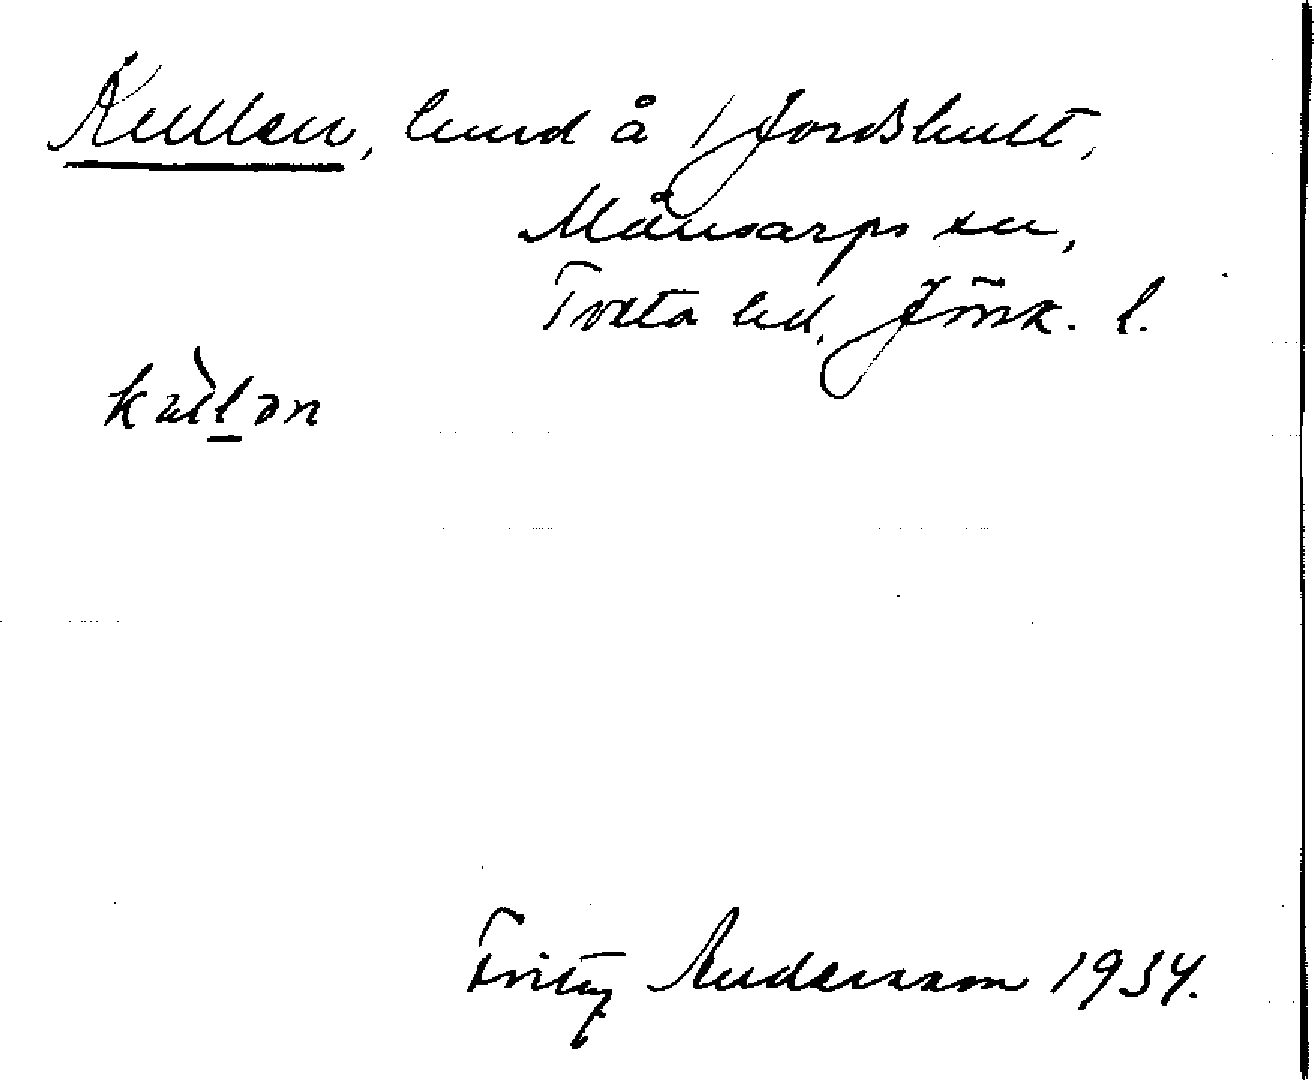 Kullen, lund å 1 Jordshult,
Månsarps sn,
Tveta hd, Jönk. l.
Fritz Andersson 1934.